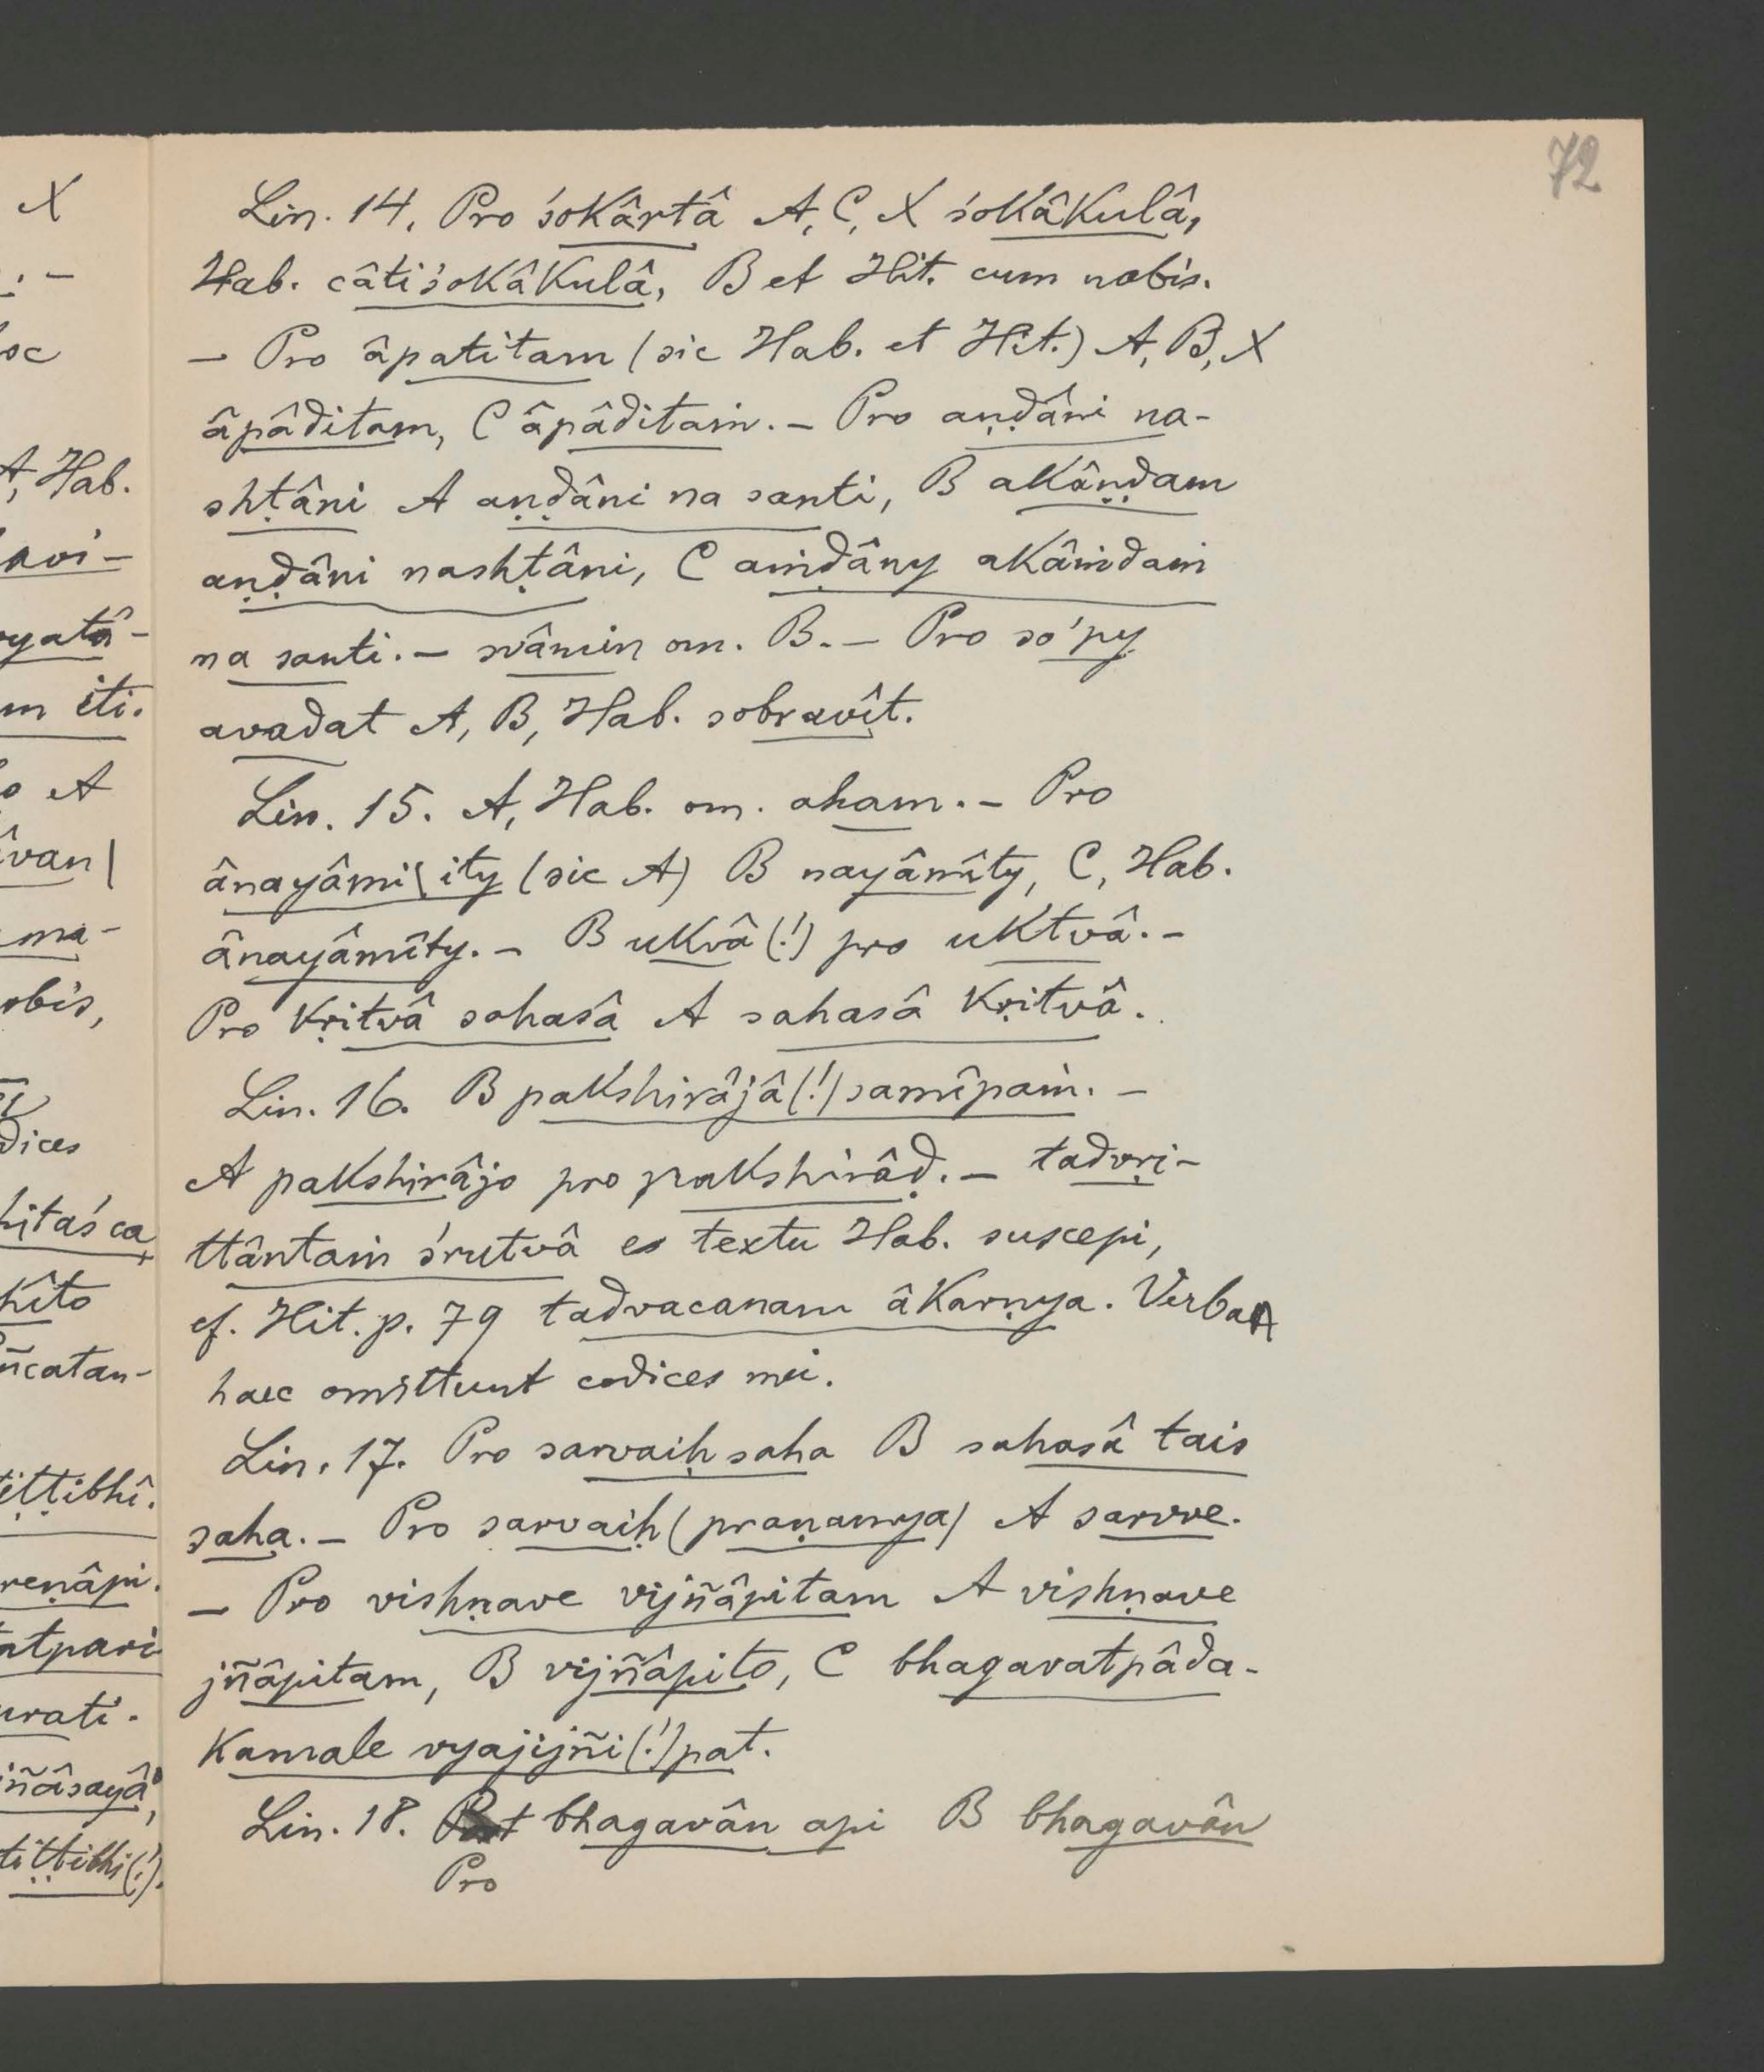 72
X
. –
oc
A, Hab.
avi-
yatâ-
m iti.
o A
âvan|
ma-
obis,
dices
hitaś ca
kîto
ñcatan-
ṭiṭṭibhî.
reṇâpi.
atpari
urati.
iñâsayâ,
tiṭṭibhi(!).
Lin. 14. Pro śokârtâ A, C, X śokâkulâ,
Hab. câtiśokâkulâ, B et Hit. cum nobis.
– Pro âpatitam (sic Hab. et Hit.) A, B, X
âpâditam, C âpâditaṁ. – Pro aṇḍâni na-
shṭâni A aṇḍâni na santi, B akâṇḍam
aṇḍâni nashṭâni, C aṁḍâny akâṁdaṁ
na santi. – svâmin om. B. – Pro so'py
avadat A, B, Hab. sobravît.
Lin. 15. A, Hab. om. aham. – Pro
ânayâmi| ity (sic A) B nayâmîty, C, Hab.
ânayâmîty. – B ukvâ (!) pro uktvâ. –
Pro kṛitvâ sahasâ A sahasâ kṛitvâ.
Lin. 16. B pakshirâjâ (!) samîpaṁ. –
A pakshirâjo pro pakshirâḍ. – tadvṛi-
ttântaṁ śrutvâ es textu Hab. suscepi,
cf. Hit. p. 79 tadvacanam âkarṇya. Verba
haec omittunt codices mei.
Lin. 17. Pro sarvaiḥ saha B sahasâ tais
saha. – Pro sarvaiḥ (praṇamya) A sarvve.
– Pro vishṇave vijñâpitam A vishṇave
jñâpitam, B vijñâpito, C bhagavatpâda-
kamale vyajijñi (!) pat.
Lin. 18. bhagavân api B bhagavân
Pro